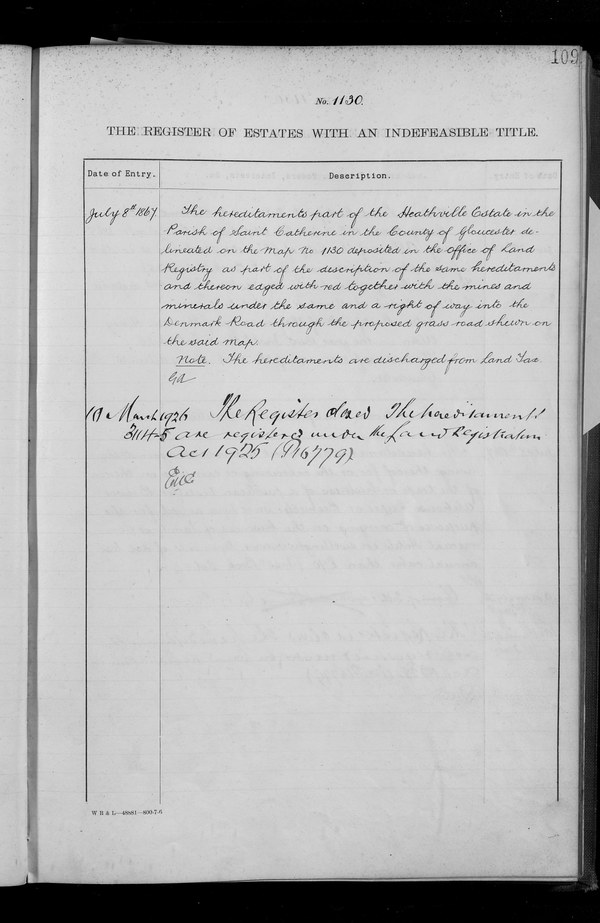 109
No. 1130.
THE REGISTER OF ESTATES WITH AN INDEFEASIBLE TITLE.
Date of Entry. Description.
July 8th 1867 The hereditaments part of the Heathville Estate in the
Parish of Saint Catherine in the County of Gloucester de-
lineated on the Map No 1130 deposited in the Office of Land
Registry as part of the description of the same hereditaments
and thereon edged with red together with the mines and
minerals under the same and a right of way into the
Denmark Road through the proposed grass road shewn on
the said Map.
Note. The hereditaments are discharged from Land Tax.
March 1926 The Register closed The hereditaments
are registered under the Land Registration
Act 1925 (P16779)
W B & L—48881—800-7-6